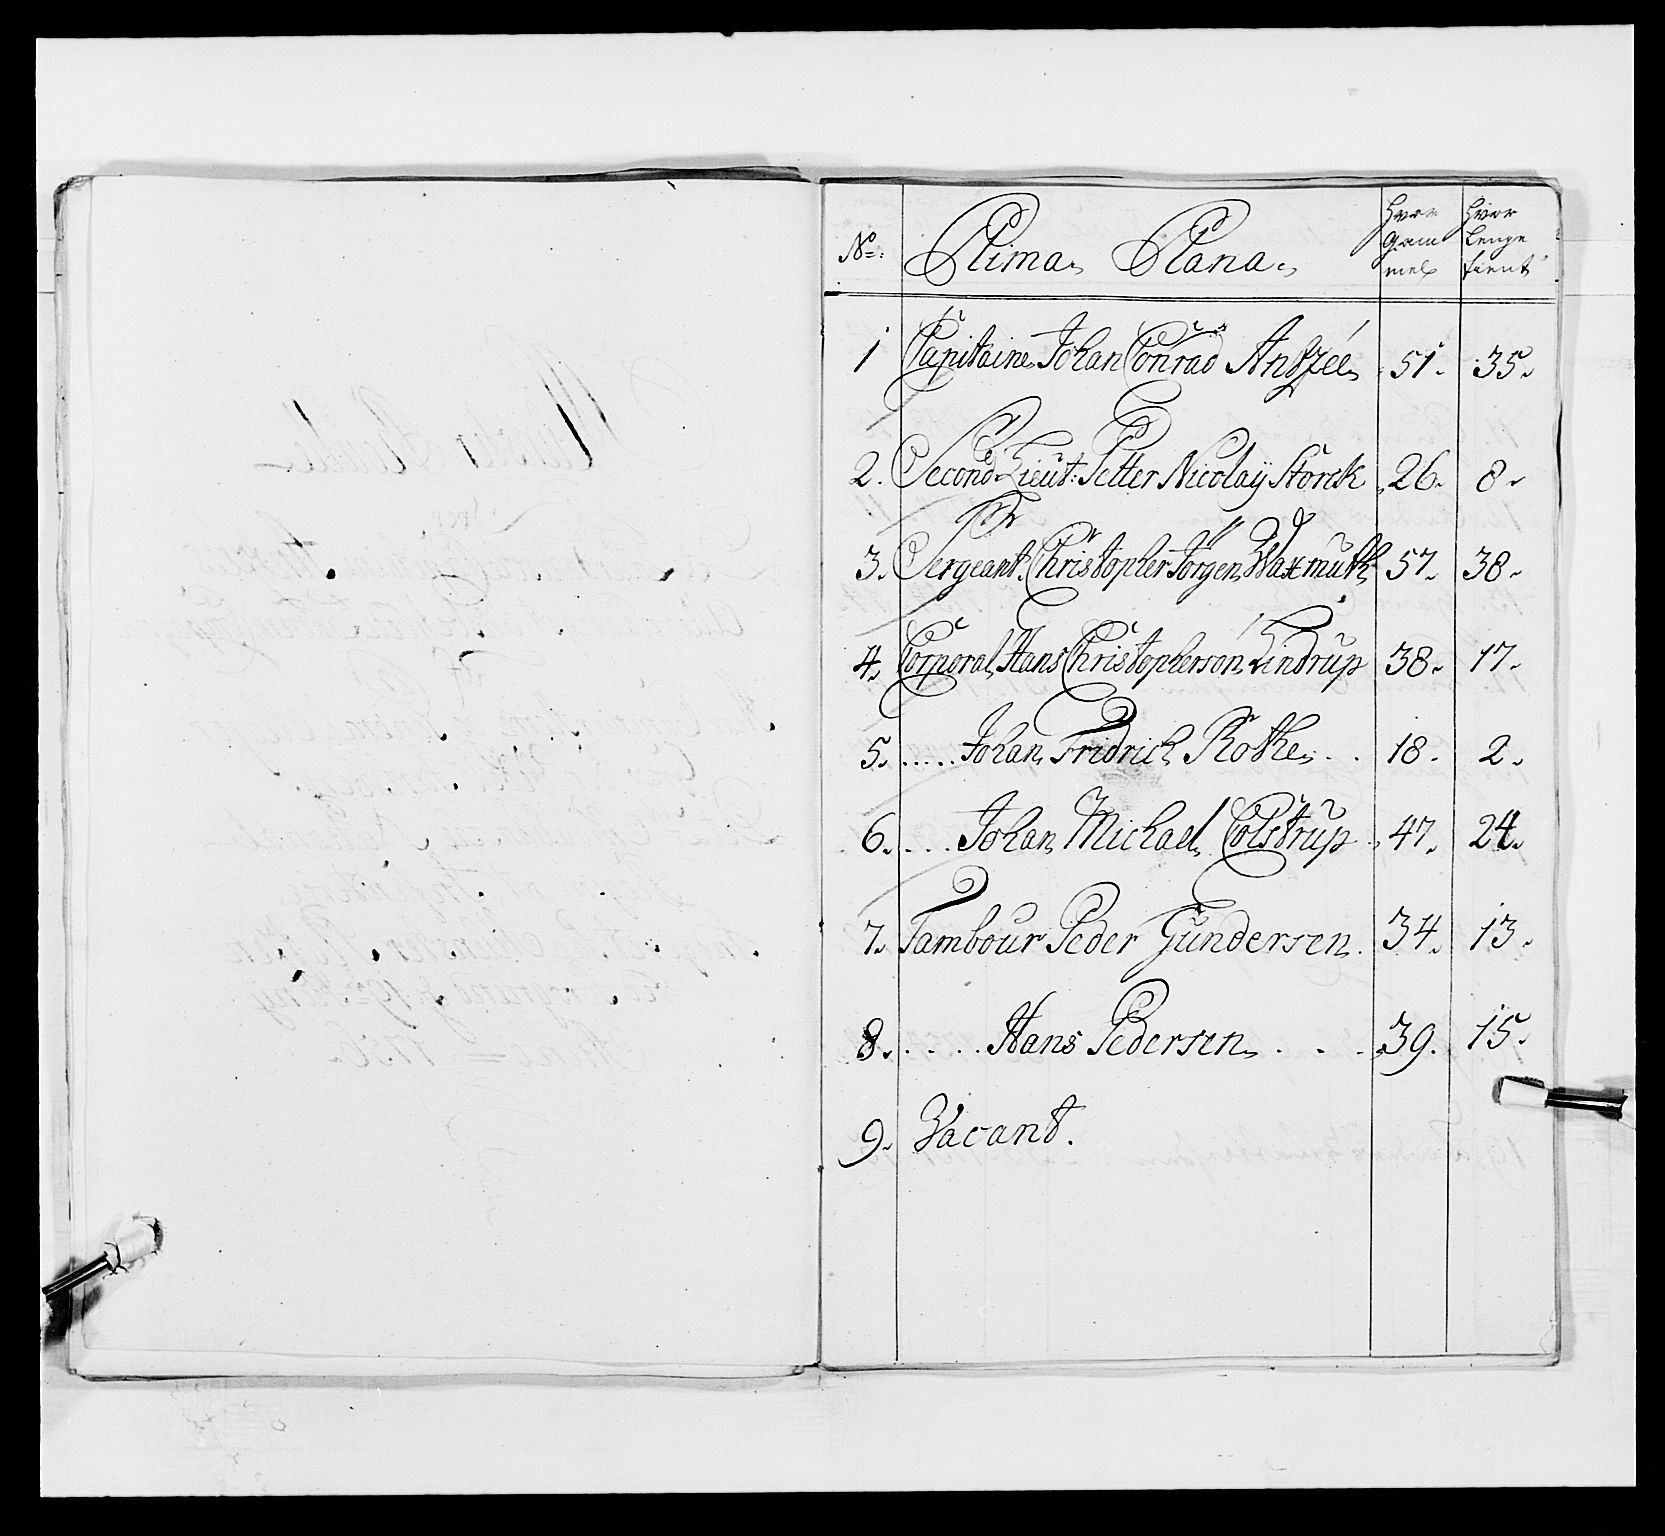 No: Prima Plana. Hvor Gam mel Hvor lenge tient
1 Capitaine Johan Conrad 51. 35.
2. Second Lieut: Petter Nicolaÿ Storck 26. 8.
3. Sergeant Christopher Jörgen Waxmuth 57. 38.
4. Corporal Hans Christopherson Lindrup 38. 17.
5. ..... Johan Fridrich Rothe . . 18. 2.
6. .... Johan Michael Colstrup 47. 24.
7. Tambour Peder Gundersen. 34. 13.
8. .... Hans Pedersen . . . 39. 15.
9. Vacant.